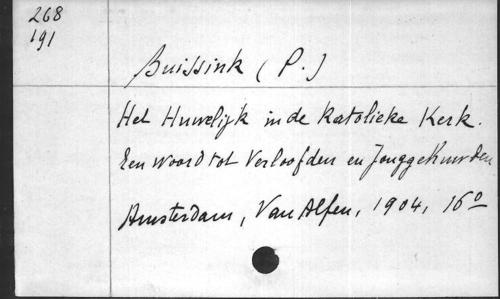 268
191
Buissink (P.)
Het Huwelijk in de Katolieke Kerk.
Een woord tot Verloofden en Jonggehuwden
Amsterdam, Van Alfen, 1904, 16º